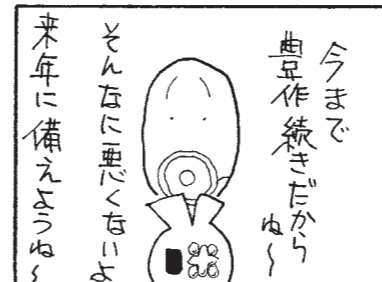 今まで
豊作続きだから
ね〜
そんなに悪くないよ
来年に備えようね〜